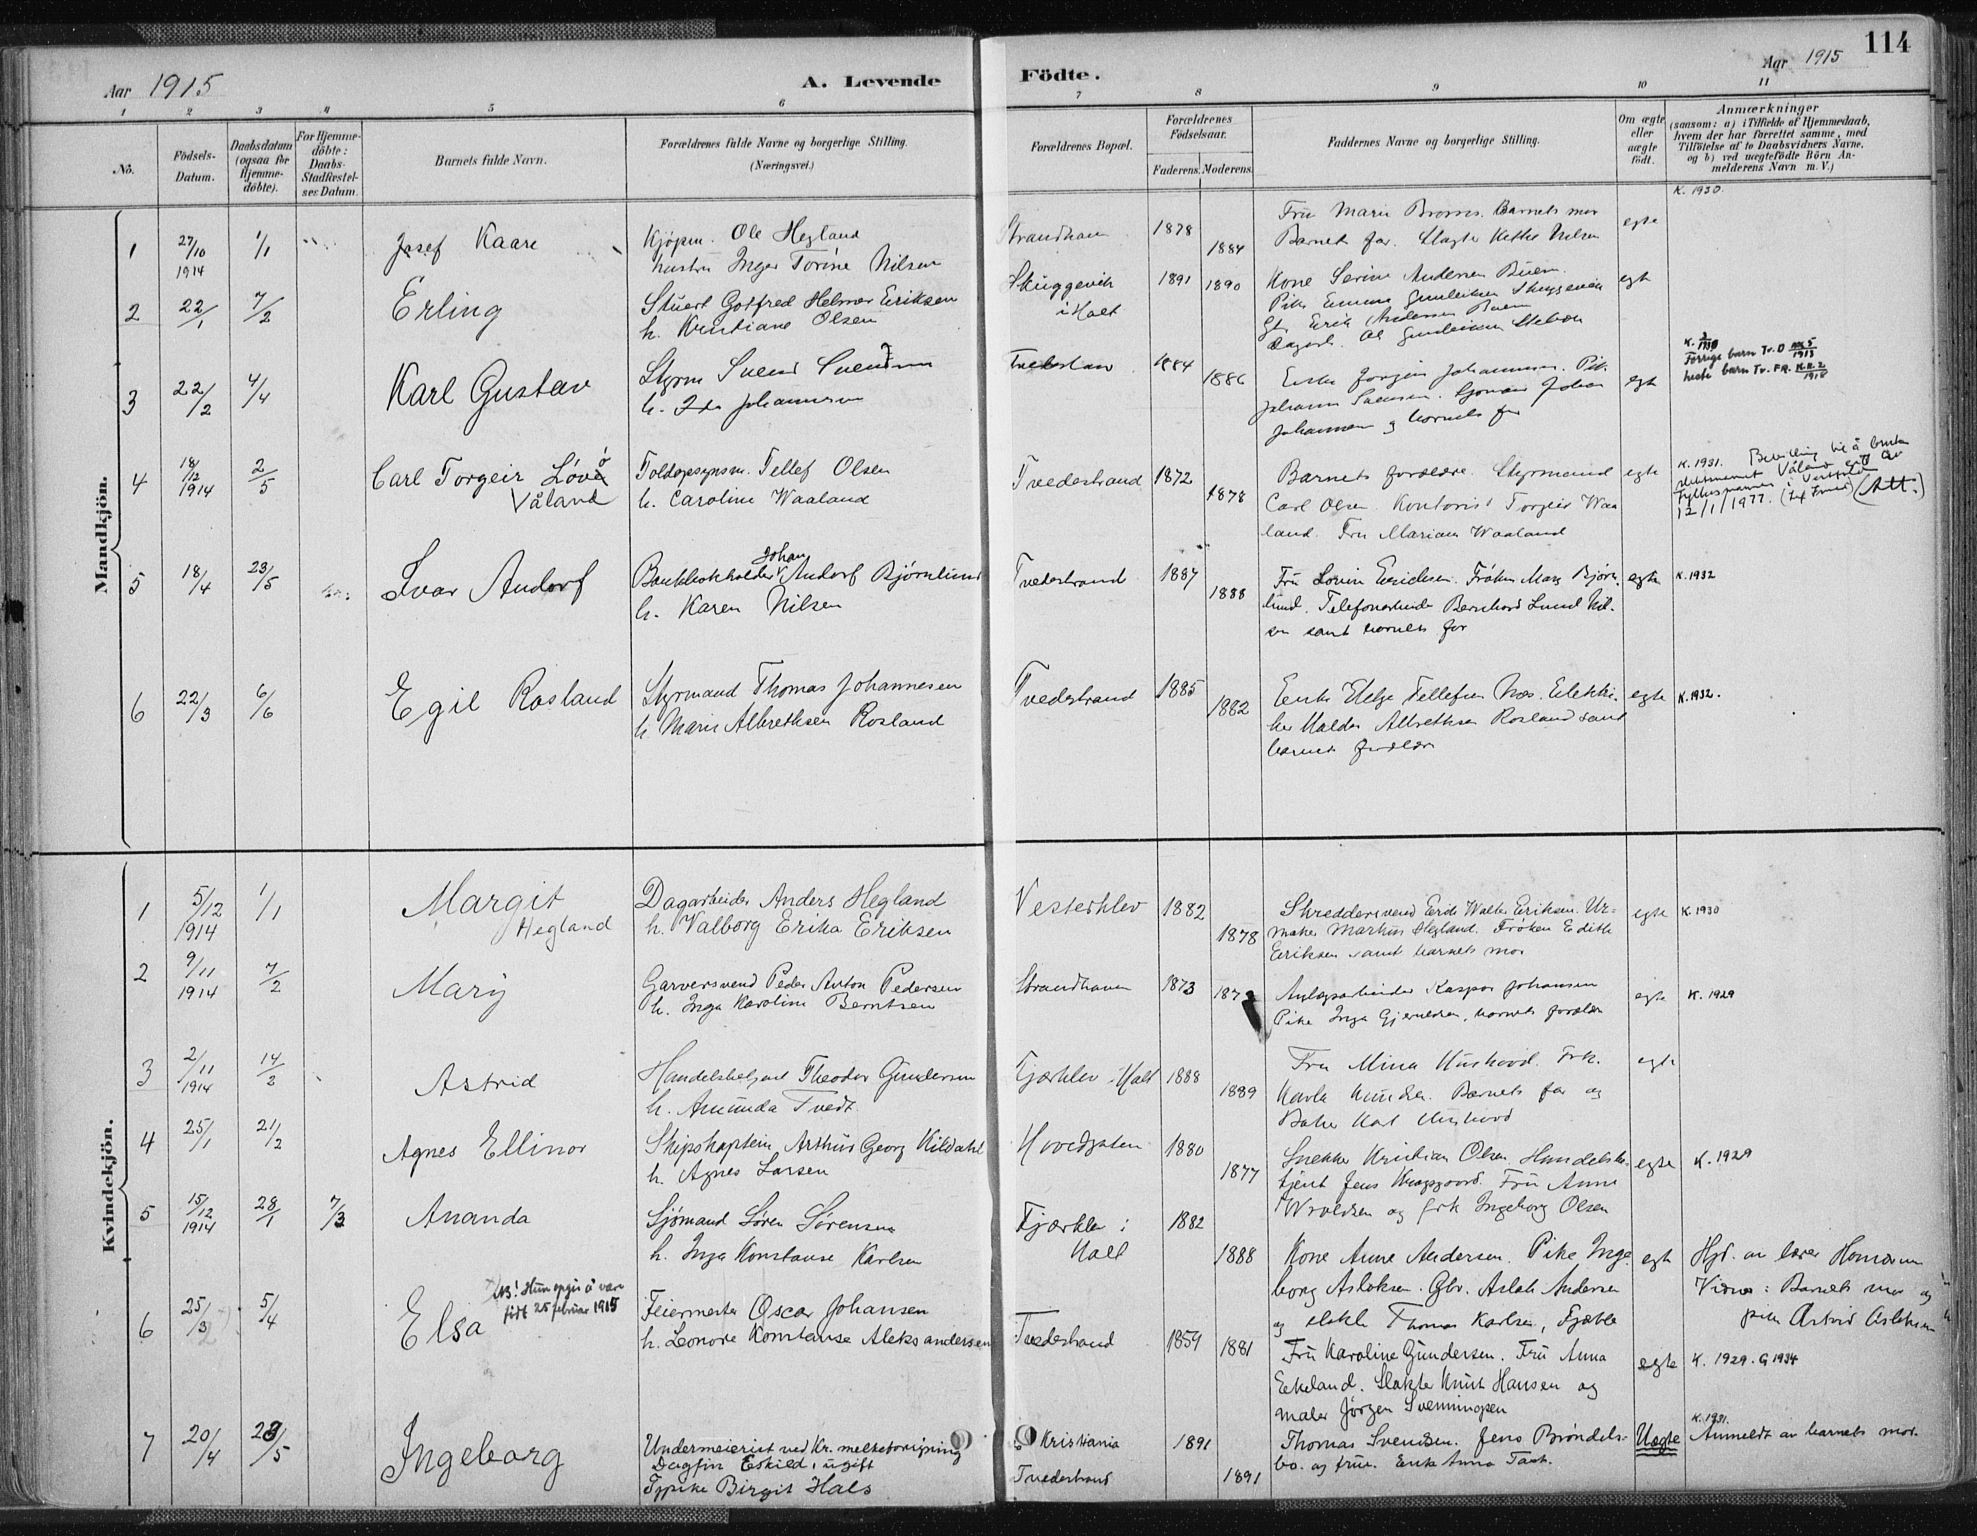 114
Aar 1915
A. Levende Födte.
Aar 1915
1 2 3 4 5 6 7 8 9 10 11
No.
Födsels-Datum.
Daabsdatum (ogsaa for hjemme-döbte).
For Hjemme-döbte: Daabs-Stadfestel-ses Datum.
Barnets fulde Navn.
Forældrenes fulde Navne og borgerlige Stilling.
(Næringsvei.)
Forældrenes Bopæl.
Forældrenes Födselsaar.
Faderens. Moderens.
Faddernes Navne og borgerlige Stilling.
Om ægte eller uægte födt.
Anmærkninger
(saasom: a) i Tilfælde af Hjemmedaab, hvem der har forrettet samme, med Tilföielse af to Daabsvidners Navne, og b) ved uægtefödte Börn An-melderens Navn m. V.)
Mandkjön.
1 27/10 1914 1/1 Josef Kaare
Kjøpm. Ole Hegland
hustru Inger Torine Nilsen
Strandhaven 1878 1884
Barnets mor
Barnets far.
egte K. 1930.
2 22/1 7/2 Erling
Stuert Gotfred Helmer Eriksen
h. Kristiane Olsen
Skuggevik i Holt 1891 1890
Kone Serine Andersen Buene.
egte
3 22/2 4/4 Karl Gustav
Styrm Svend Svendsen
h. Ida Johannesen
Tvedestrand 1884 1886
Enke Jørgine Johannesen. Pike
Johannesen og barnets far
egte K. 1930
Forrige barn Tv. D
neste barn Tv. FR.
4 18/12 1914 2/5 Carl Torgeir Løvø
Våland
Toldopsynsm. Tellef Olsen
h. Caroline Waaland
Tvedestrand 1872 1878
Barnets forældre. Styrmand
Carl Olsen. Kontorist Torgeir Waa-
land. Fru Mariane Waaland
egte K. 1931. Bevilling til å bruke
slektsnavnet Våland gitt av
Fylkesmannen i Vestfold
12/1/1977.
5 18/4 23/5 Ivar Andorf
Bankbokholder Johan Andorf Bjørnlund
h. Karen Nilsen
Tvedestrand 1887 1888
Fru Lovine Eriksen. Frøken Mary Bjørn-
lund. Telefonarbeider Bernhard Lund Nil-
sen samt barnets far
egte K. 1932
6 22/3 6/6 Egil Rosland
Styrmand Thomas Johannesen
h. Marie Albrethsen Rosland
Tvedestrand 1885 1882
Enke Helge Tellefsen Næs. Elektri-
ker Halder Albrethsen Rosland samt
barnets forældre
egte K. 1932.
Kvindekjön.
1 5/12 1914 1/1 Margit
Hegland
Dagarbeider Anders Hegland
h. Valborg Erika Eriksen
Vesterklev 1882 1878
Skreddersvend Erik Walter Eriksen. Ur-
maker Markus Hegland. Frøken Edith
Eriksen samt barnets mor
egte K. 1930
2 9/11 1914 7/2 Mary
Garversvend Peder Anton Pedersen
h. Inga Karoline Berntsen
Strandhaven 1873
Anlægsarbeider Kaspar Johansen
Pike Inga Gjermundsen, barnets forældre
egte K. 1929
3 2/11 1914 14/2 Astrid
Handelsbetjent Theodor Gundersen
h. Amunda Tvedt
Fjærklev i Holt 1888 1889
Fru Mina Hushovd. Frk.
Barnets far og
Baker Karl Hushovd
egte
4 25/1 21/2 Agnes Ellinor
Skipskaptein Arthur Georg Kildahl
h. Agnes Larsen
Hovedgaten 1880 1877
Snekker Kristian Olsen, Handelsbe-
tjent Jens Krogsgaard. Fru Anne
Wroldsen og frk Ingeborg Olsen
egte K. 1929
5 15/12 1914 28/1 7/3 Ananda
Sjømand Søren Sørensen
h. Inga Konstanse Karlsen
Fjærklev i Holt 1882 1888
Kone Anne Andersen. Pike Inge
borg Aslaksen. Gbr. Aslak Andersen
og Thomas Karlsen, Fjæklev
egte Hjd. av lærer
Vidner: Barnets mor og
pike Astrid Aslaksen
6 25/3 5/4 Elsa
NB! Hun opgir å være
født 25 februar 1915
Feiermester Oscar Johansen
h. Leonore Konstanse Aleksandersen
Tvedestrand 1859 1881
Fru Karoline Gundersen. Fru Anna
Eikeland. Slakter Knut Hansen og
maler Jørgen Svenningsen
egte K. 1929. G 1934
7 20/4 23/5 Ingeborg
Undermeierist ved Kr. melkeforsyning
Dagfin Eskild, ugift
Tjpike Birgit Hals
Kristiania 1891
Tvedestrand 1891
Thomas Svendsen. Jens Brøndels-
bo. og frue. Enke Anna Fash.
Uegte K. 1931.
Anmeldt av barnets mor.